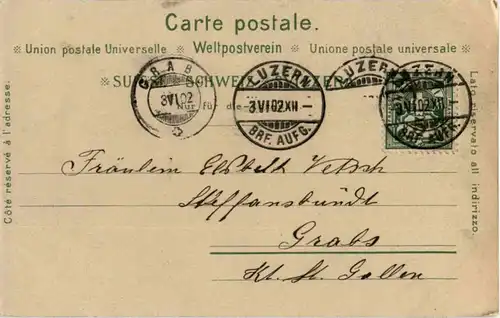 Carte postale.
Union postale Universelle Weltpostverein Unione postale universale
SU SCHWEI ZZER
Nur für die
GRABS
3 VI 02
LUZERN
3 VI 02 XII –
BRF. AUFG.
LUZERN
LUZERN
3 VI 02 XII –
BRF. AUFG.
Côté réservé à l'adresse.
Lato riservato all indirizzo.
Fräulein Elsbeth Vetsch
Grabs
Kt. St. Gallen